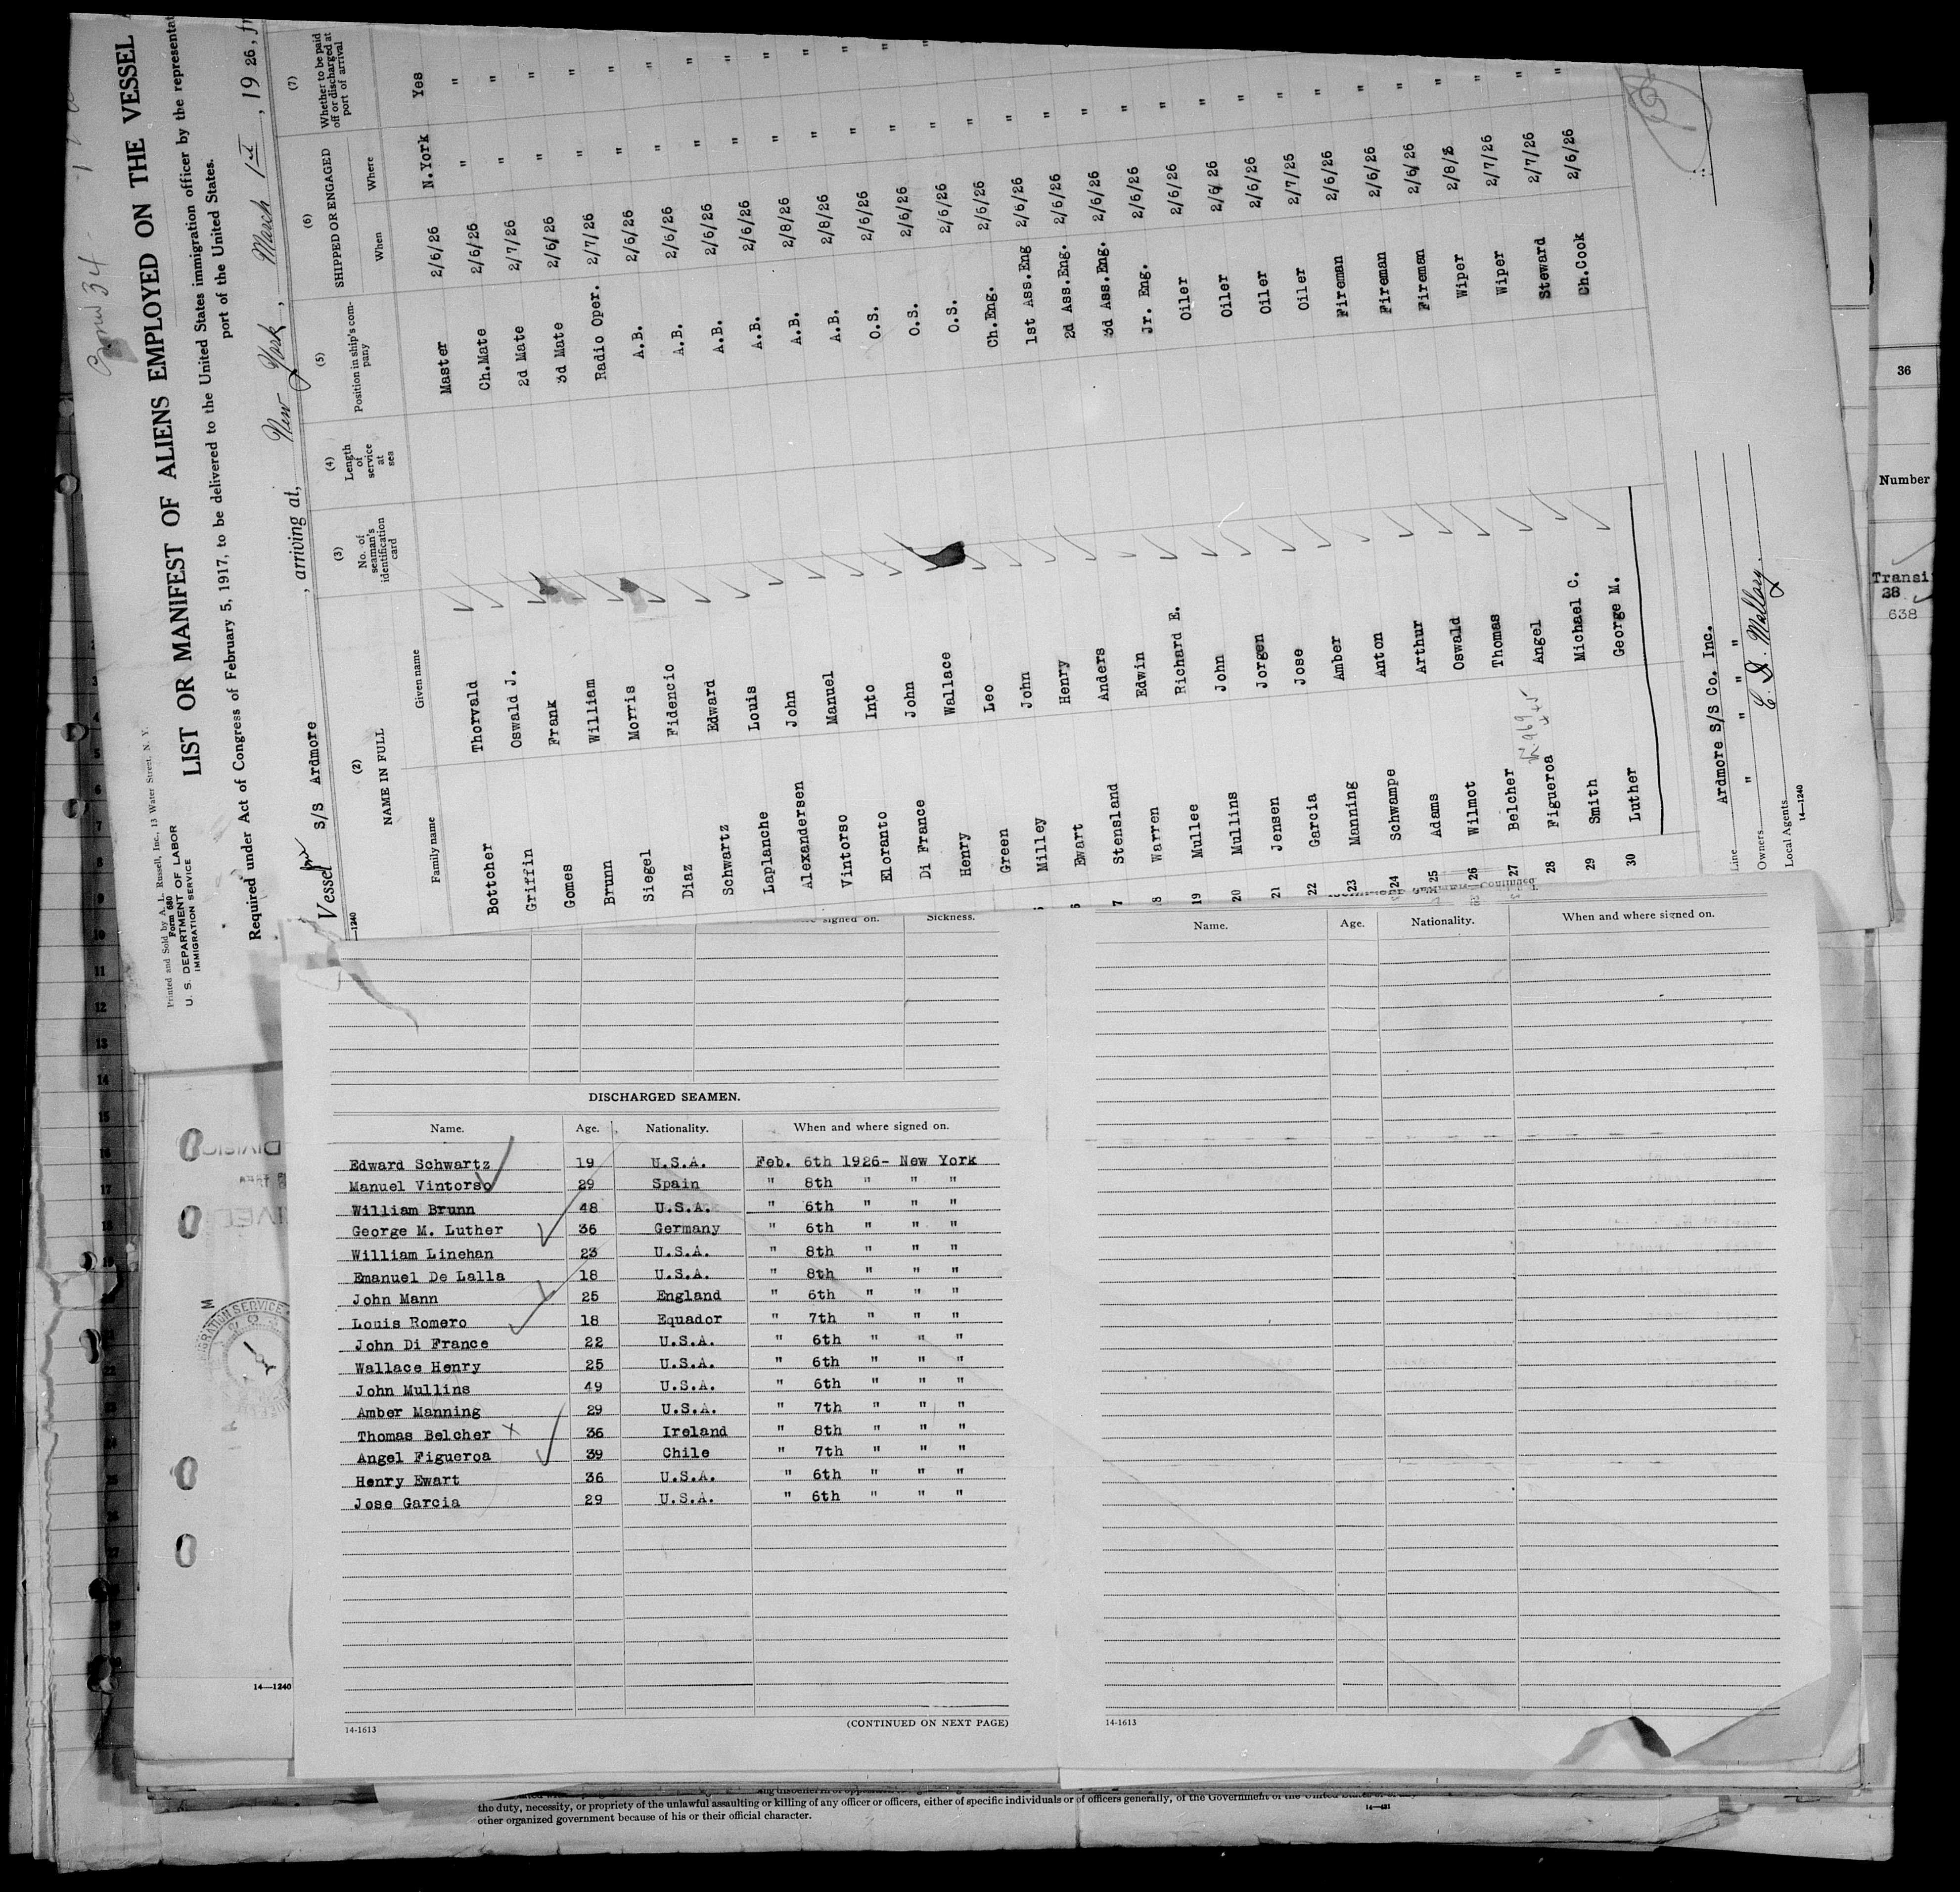 Printed and Sold by A. L. Russell, Inc., 13 Water Street, N. Y.
Form 680
U. S. DEPARTMENT OF LABOR
IMMIGRATION SERVICE
LIST OR MANIFEST OF ALIENS EMPLOYED ON THE VESSEL
Required under Act of Congress of February 5, 1917, to be delivered to the United States immigration officer by the representat
port of the United States.
Vessel S/S Ardmore , arriving at, New York, March 1st, 1926, fr
(2) (3) (4) (5) (6) (7)
NAME IN FULL No. of seaman's identification card Length of service at sea Position in ship's company SHIPPED OR ENGAGED Whether to be paid off or discharged at port of arrival
Family name Given name When Where
Bottcher Thorvald Master 2/6/26 N.York Yes
Griffin Oswald J. Ch.Mate 2/6/26 " "
Gomes Frank 2d Mate 2/7/26 " "
Brunn William 3d Mate 2/6/26 " "
Siegel Morris Radio Oper. 2/7/26 " "
Diaz Fidencio A.B. 2/6/26 " "
Schwartz Edward A.B. 2/6/26 " "
Laplanche Louis A.B. 2/6/26 " "
Alexandersen John A.B. 2/6/26 " "
Vintorso Manuel A.B. 2/8/26 " "
Eloranto Into A.B. 2/8/26 " "
Di France John O.S. 2/6/26 " "
Henry Wallace O.S. 2/6/26 " "
Green Leo O.S. 2/6/26 " "
Milley John Ch.Eng. 2/6/26 "
Ewart Henry 1st Ass.Eng 2/6/26 "
Stensland Anders 2d Ass.Eng. 2/6/26 "
Warren Edwin 3d Ass.Eng. 2/6/26 "
19 Mullee Richard E. Jr. Eng. 2/6/26 "
20 Mullins John Oiler 2/6/26 "
21 Jensen Jorgen Oiler 2/6/26 "
22 Garcia Jose Oiler 2/6/26 "
23 Manning Amber Oiler 2/7/26 "
24 Schwampe Anton Fireman 2/6/26 "
25 Adams Arthur Fireman 2/6/26 "
26 Wilmot Oswald Fireman 2/6/26 "
27 Belcher Thomas Wiper 2/8/ "
28 Figueroa Angel Wiper 2/7/26 "
29 Smith Michael C. Steward 2/7/26 "
30 Luther George M. Ch.Cook 2/6/26 "
Line Ardmore S/S Co. Inc.
Owners " " " "
Local Agents E. D. Mallory.
14—1240
36
Number
Transi
38
638
signed on. Sickness.
DISCHARGED SEAMEN.
Name. Age. Nationality. When and where signed on.
Edward Schwartz 19 U.S.A. Feb. 6th 1926- New York
Manuel Vintorso 29 Spain " 8th " " "
William Brunn 48 U.S.A. " 6th " " "
George M. Luther 36 Germany " 6th " " "
William Linehan 23 U.S.A. " 8th " " "
Emanuel De Lalla 18 U.S.A. " 8th " " "
John Mann 25 England " 6th " " "
Louis Romero 18 Equador " 7th " " "
John Di France 22 U.S.A. " 6th " " "
Wallace Henry 25 U.S.A. " 6th " " "
John Mullins 49 U.S.A. " 6th " " "
Amber Manning 29 U.S.A. " 7th " " "
Thomas Belcher x 36 Ireland " 8th " " "
Angel Figueroa 39 Chile " 7th " " "
Henry Ewart 36 U.S.A. " 6th " " "
Jose Garcia 29 U.S.A. " 6th " " "
14-1613 (CONTINUED ON NEXT PAGE)
Name. Age. Nationality. When and where signed on.
14-1613
14—1240
the duty, necessity, or propriety of the unlawful assaulting or killing of any officer or officers, either of specific individuals or of officers generally, of the Government of the United States
other organized government because of his or their official character.